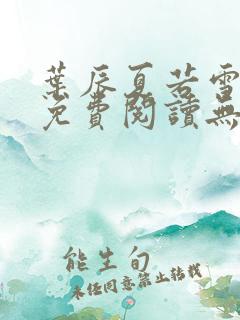 葉辰夏若雪
免費閱讀無
能生旬
未經同意禁止轉載